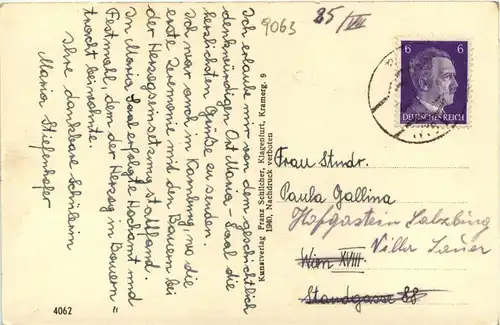 9063
25/VII
Ich erlaube mir von dem geschichtlich
denkwürdigen Ort Maria-Saal die
herzlichsten Grüße zu senden.
Ich war auch in Karnburg, wo die
erste Zeremonie mit den Bauern bei
der Herzogseinsetzung stattfand.
In Maria Saal erfolgte Hochamt und
Festmahl, dem der Herzog in Bauern"
tracht beiwohnte.
Ihre dankbare Schülerin
Maria Stiefenhofer
4062
Kunstverlag Franz Schilcher, Klagenfurt, Kramerg. 9
1940, Nachdruck verboten
6 6
DEUTSCHES REICH
Frau Stndr.
Paula Gallina
Hofgastein Salzburg
Villa
Wien XVIII.
Standgasse 88